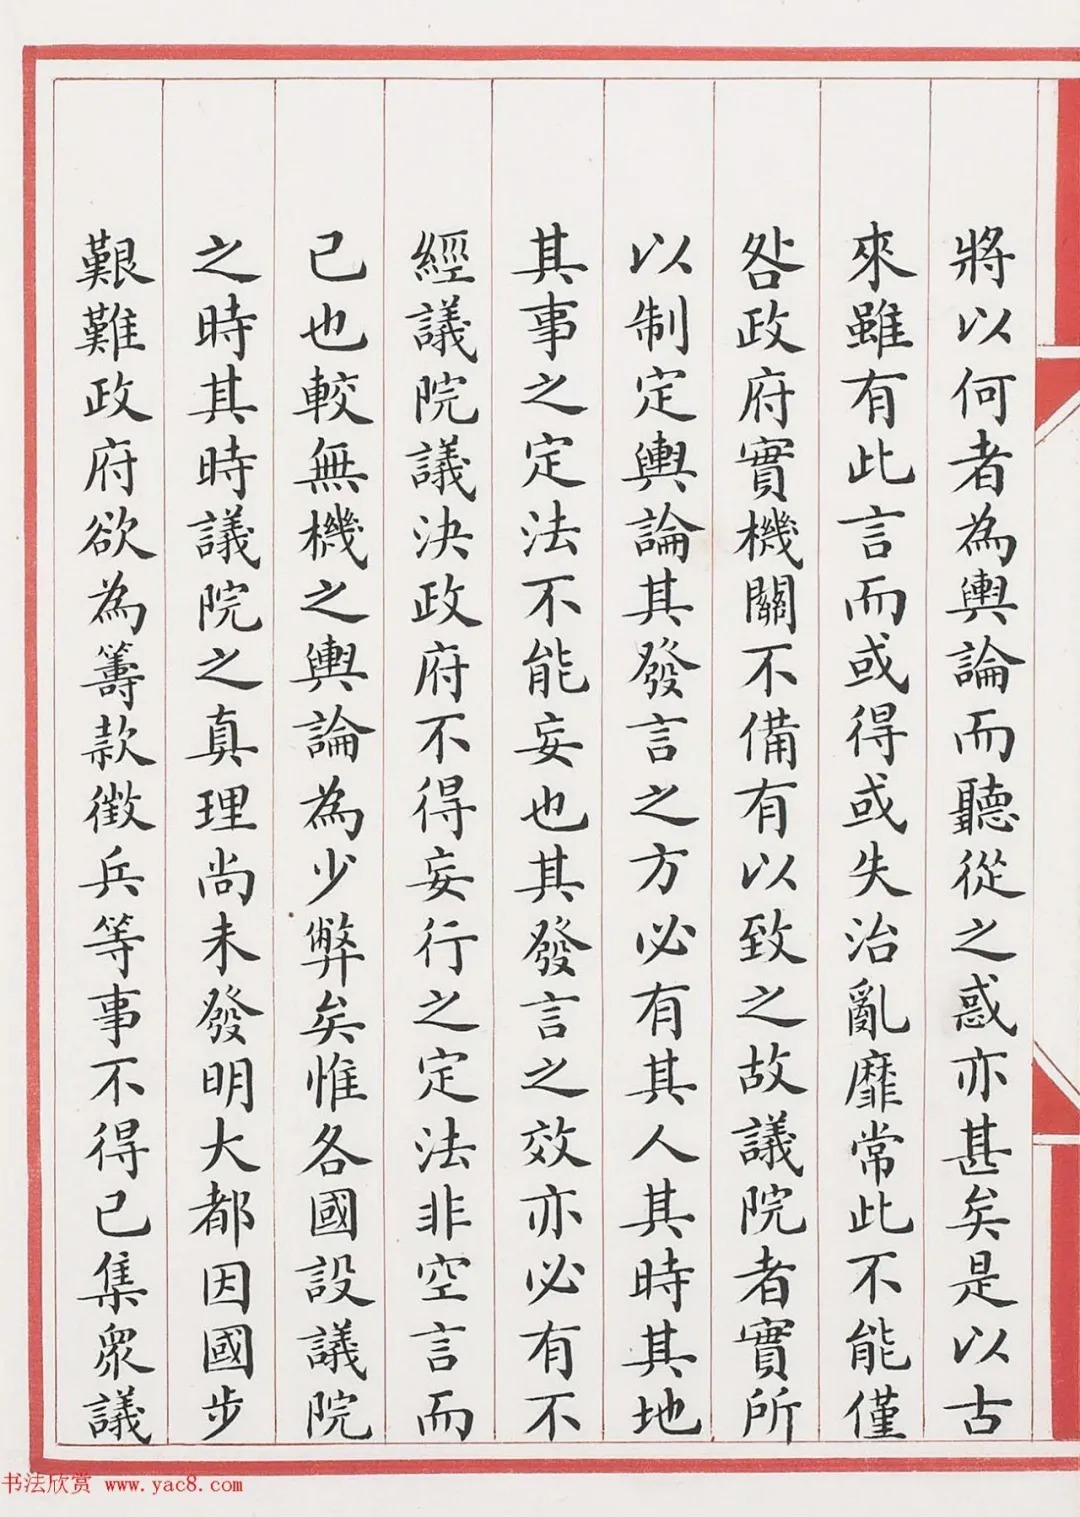 將以何者為輿論而聽從之惑亦甚矣是以古
來雖有此言而或得或失治亂靡常此不能僅
咎政府實機關不備有以致之故議院者實所
以制定輿論其發言之方必有其人其時其地
其事之定法不能妄也其發言之效亦必有不
經議院議決政府不得妄行之定法非空言而
已也較無機之輿論為少弊矣惟各國設議院
之時其時議院之真理尚未發明大都因國步
艱難政府欲為籌款徵兵等事不得已集眾議
书法欣赏 www.yac8.com